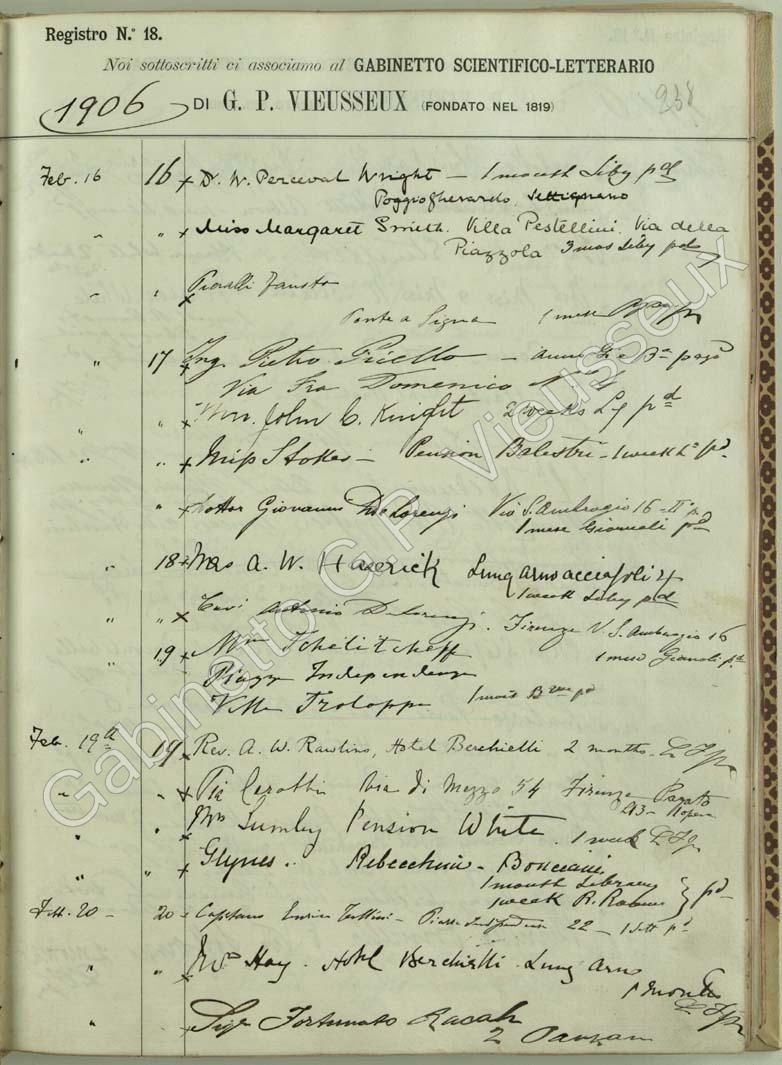 Registro N.° 18.
Noi sottoscritti ci associamo al GABINETTO SCIENTIFICO-LETTERARIO
1906 DI G. P. VIEUSSEUX (FONDATO NEL 1819) 238
Feb. 16 16 x D. W. Perceval Wright — 1 month Liby pd
Poggiogherardo, Settignano
" " x Miss Margaret Smith. Villa Pestellini. Via della
Piazzola 3 mos Liby pd
" " x Fausto
Ponte a Signa 1 mese
" 17 x Ing. Pietro —
Via Fra Domenico
" " x John C. Knight 2 weeks pd
" " x Miss Stokes — Pension Balestri — 1 week pd
" " x Dottor Giovanni De Lorenzi Via S. Ambrogio 16 - II° p.
1 mese Giornali pd
" 18 x Mrs A. W. Haverick Lung'arno acciajoli 4
1 week Liby pd
" " x Antonio De Lorenzi. Firenze V. S. Ambrogio 16
1 mese Giornali pd
" 19 x Mme Tchelitcheff
Piazza Indipendenza
Villa Trollope 1 mois pd
Feb. 19th 19 x Rev. A. W. Rawlins, Hotel Berchielli 2 months
" " x Pia Via di Mezzo 54 Firenze Pagato
" " x Mrs Lumley Pension White. 1 week
" " x Glynes .. Rebecchini — Bonciani
1 month Library
week R. Rooms } pd
Feb. 20 — 20 x Capitano Enrico — Piazza Indipendenza 22 — 1 Sett pd
" " x Mrs Hay. Hotel Berchielli. Lung Arno
1 month
" x Sigr Fortunato Racah
2
Gabinetto G.P. Vieusseux